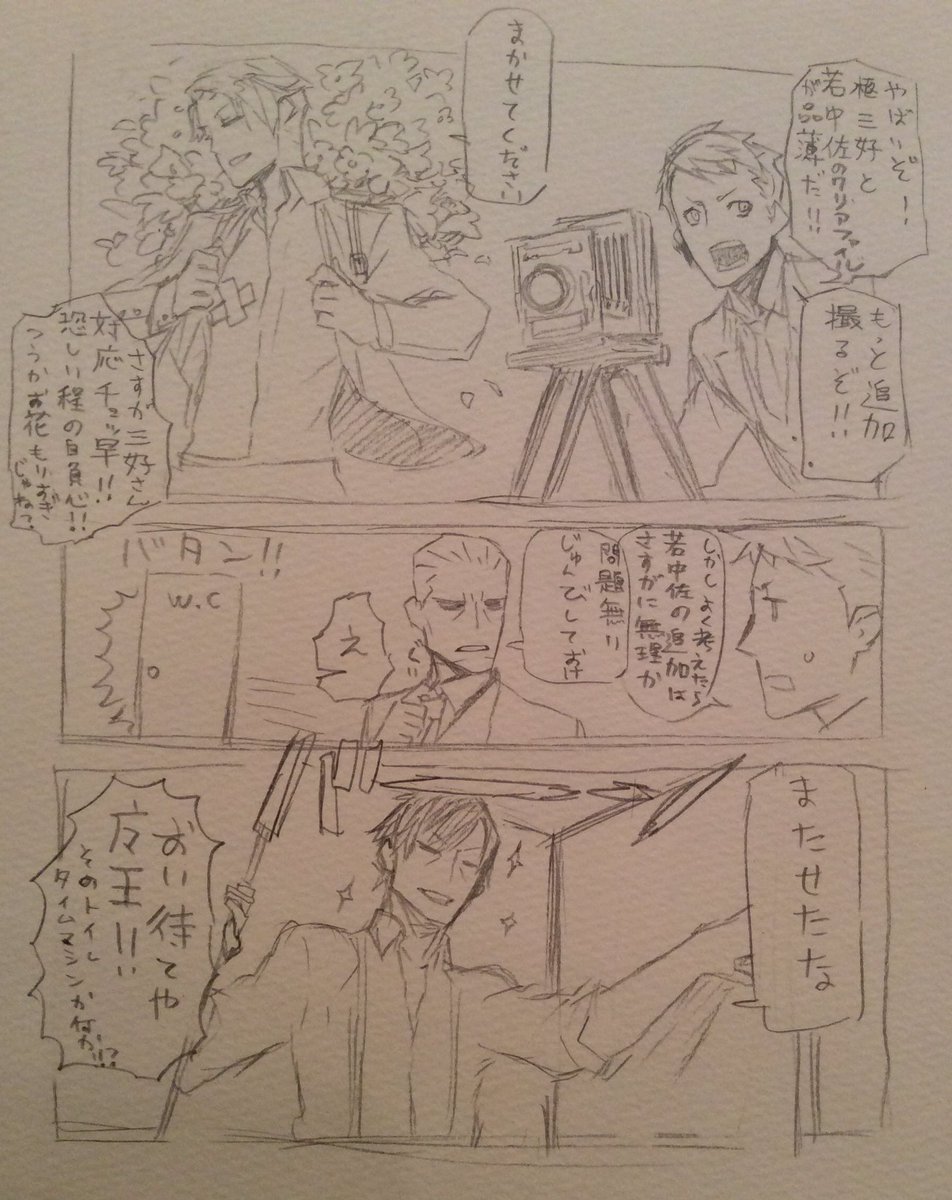 やばいぞー!
極三好と
若中佐のクリアファイル
が品薄だ!!
もっと追加
撮るぞ!!
まかせてください
さすが三好さん
対応チョッ早!!
恐しい程の自負心!!
つうかお花もりすぎ
じゃね?
しかしよく考えたら
若中佐の追加は
さすがに無理か
問題無い
じゅんびしておけ
え
バタン!!
W.C
またせたな
おい待てや
魔王!!
そのトイレ
タイムマシンかなんか!?